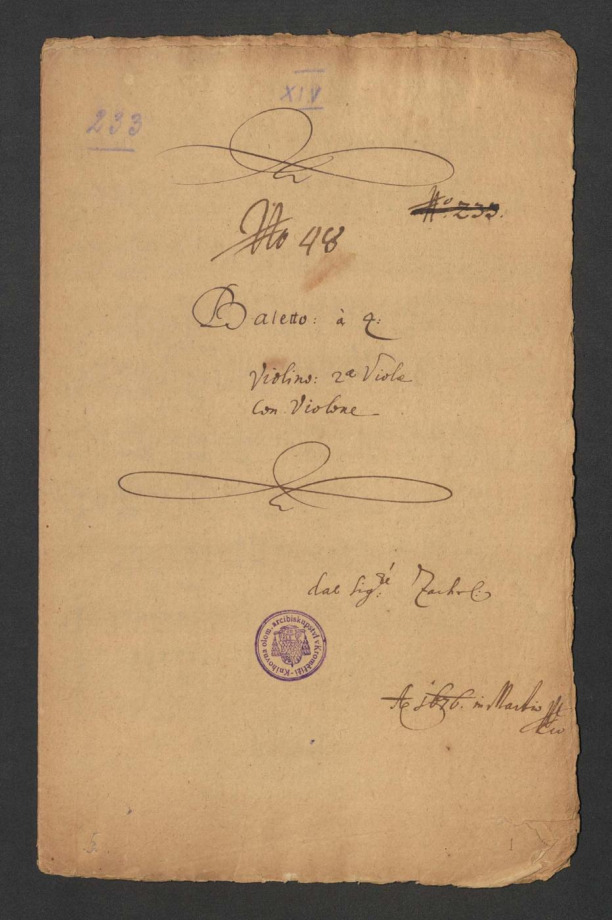 XIV
233
No. 233.
No 48
Baletto: à 4:
Violino: 2ª Viola
Con Violone
dal Sig:
Knihovna olom. arcibiskupství v Kroměříži
Aº 1676. in Martio